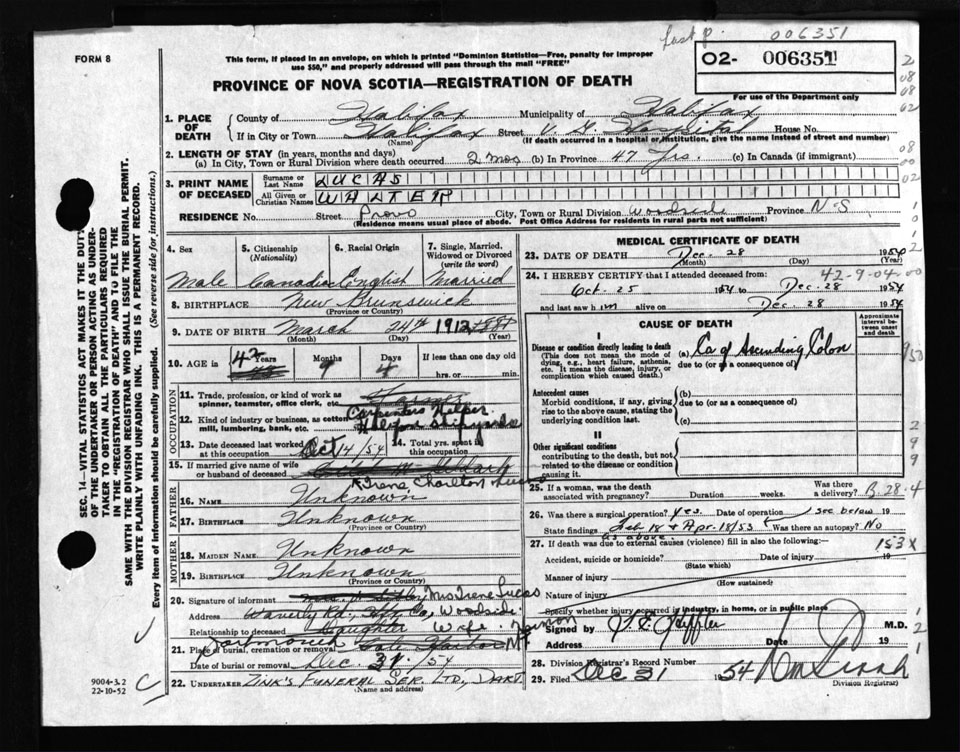 Last p. 006351
FORM 8
This form, if placed in an envelope, on which is printed "Dominion Statistics—Free, penalty for improper
use $50," and properly addressed will pass through the mail "FREE"
02- 006351
For use of the Department only
PROVINCE OF NOVA SCOTIA—REGISTRATION OF DEATH
2
08
08
62
08
00
02
1
0
1
2
1. PLACE OF DEATH County of Halifax Municipality of Halifax
If in City or Town Halifax Street V. G. Hospital House No.
(Name) (If death occurred in a hospital or institution, give the name instead of street and number)
2. LENGTH OF STAY (in years, months and days)
(a) In City, Town or Rural Division where death occurred 2 mos (b) In Province 47 Yrs. (c) In Canada (if immigrant)
3. PRINT NAME OF DECEASED Surname or Last Name LUCAS
All Given or Christian Names WALTER
RESIDENCE No. Street Provo City, Town or Rural Division Woodside Province N.S.
(Residence means usual place of abode. Post Office Address for residents in rural parts not sufficient)
4. Sex Male
5. Citizenship (Nationality) Canadian
6. Racial Origin English
7. Single, Married, Widowed or Divorced (write the word) Married
8. BIRTHPLACE New Brunswick
(Province or Country)
9. DATE OF BIRTH March 24th 1912
(Month) (Day) (Year)
10. AGE in 42 Years Months 9 Days 4 If less than one day old
hrs. or min.
OCCUPATION
11. Trade, profession, or kind of work as
spinner, teamster, office clerk, etc.
Carpenters Helper
12. Kind of industry or business, as cotton
mill, lumbering, bank, etc. Halifax Shipyards
13. Date deceased last worked at this occupation Oct 14/54 14. Total yrs. spent in this occupation
15. If married give name of wife
or husband of deceased
Irene Charlton Lucas
FATHER
16. Name Unknown
17. Birthplace Unknown
(Province or Country)
MOTHER
18. Maiden Name Unknown
19. Birthplace Unknown
(Province or Country)
20. Signature of informant Mrs Irene Lucas
Address Waverly Rd, Hfx Co, Woodside
Relationship to deceased Daughter Wife
21. Place of burial, cremation or removal
Date of burial or removal Dec. 31/54
22. UNDERTAKER ZINK'S FUNERAL SER. LTD., DART.
(Name and address)
MEDICAL CERTIFICATE OF DEATH
23. DATE OF DEATH Dec. 28 1954
(Month) (Day) (Year)
42-9-04-00
24. I HEREBY CERTIFY that I attended deceased from:
Oct. 25 1954 to Dec. 28 1954
and last saw him alive on Dec. 28 1954
CAUSE OF DEATH
Approximate interval between onset and death
I
Disease or condition directly leading to death
(This does not mean the mode of dying, e.g., heart failure, asthenia, etc. It means the disease, injury, or complication which caused death.)
(a) Ca of Ascending Colon
due to (or as a consequence of)
Antecedent causes
Morbid conditions, if any, giving rise to the above cause, stating the underlying condition last.
(b)
due to (or as a consequence of)
(c)
II
Other significant conditions
contributing to the death, but not related to the disease or condition causing it.
2
9
9
25. If a woman, was the death associated with pregnancy? Duration weeks. Was there a delivery? B-28-4
26. Was there a surgical operation? yes. Date of operation see below 19
State findings Feb 18 & Apr-18/53 Was there an autopsy? No
as above
27. If death was due to external causes (violence) fill in also the following:— 153X
Accident, suicide or homicide? Date of injury 19
(State which)
Manner of injury
(How sustained)
Nature of injury
Specify whether injury occurred in industry, in home, or in public place
Signed by M.D.
Address Date 19
28. Division Registrar's Record Number
29. Filed Dec 31 1954
Division Registrar
SEC. 14—VITAL STATISTICS ACT MAKES IT THE DUTY
OF THE UNDERTAKER OR PERSON ACTING AS UNDER-
TAKER TO OBTAIN ALL THE PARTICULARS REQUIRED
IN THE "REGISTRATION OF DEATH" AND TO FILE THE
SAME WITH THE DIVISION REGISTRAR WHO SHALL ISSUE THE BURIAL PERMIT.
WRITE PLAINLY WITH UNFADING INK. THIS IS A PERMANENT RECORD.
Every item of information should be carefully supplied. (See reverse side for instructions.)
9004-3.2
22-10-52